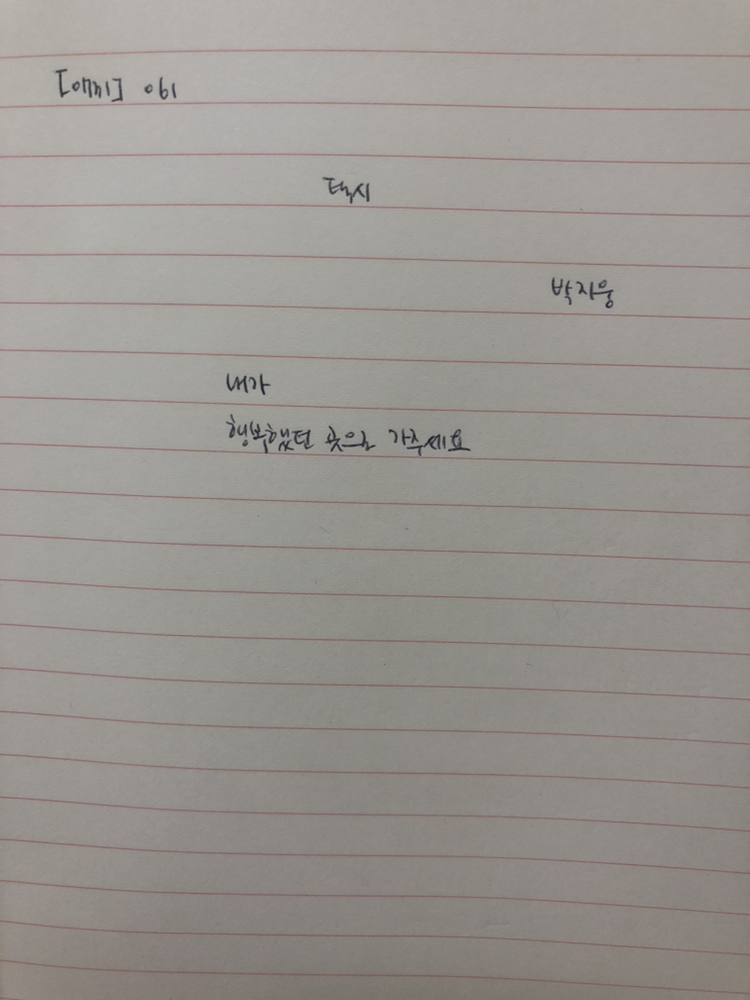 [애끼] 061
택시
박지웅
내가
행복했던 곳으로 가주세요